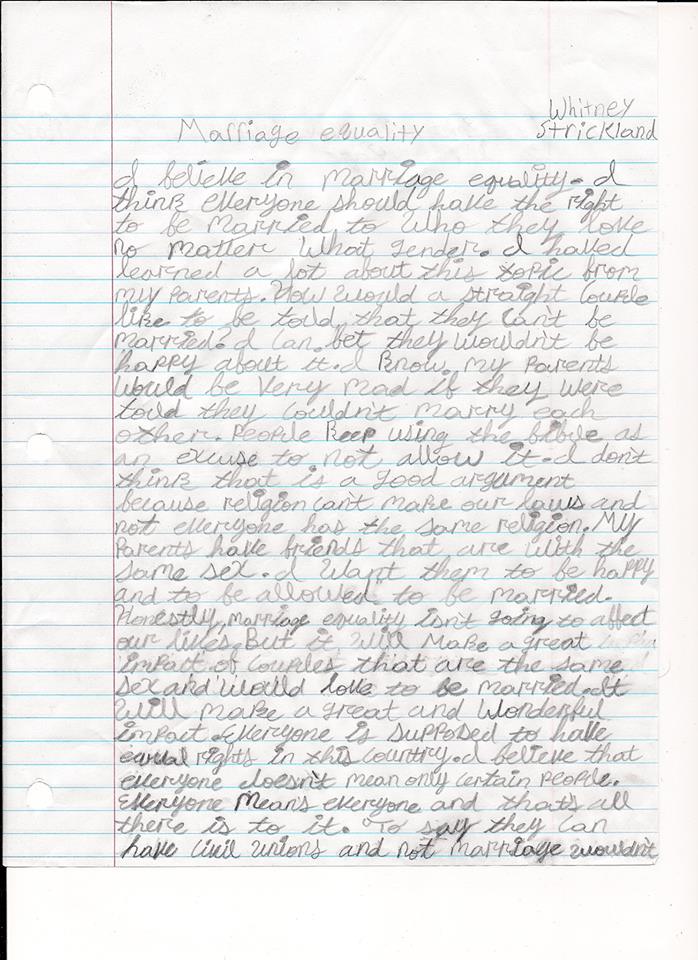 Whitney
Marriage equality Strickland
I believe in marriage equality. I
think everyone should have the right
to be married to who they love
no matter what gender. I haved
learned a lot about this topic from
my parents. How would a straight couple
like to be told that they can't be
married? I can bet they wouldn't be
happy about it. I know my parents
would be very mad if they were
told they couldn't marry each
other. People keep using the bible as
an excuse to not allow it. I don't
think that is a good argument
because religion can't make our laws and
not everyone has the same religion. My
parents have friends that are with the
same sex. I want them to be happy
and to be allowed to be married.
Honestly, marriage equality isn't going to affect
our lives. But it will make a great
impact of couples that are the same
sex and would love to be married. It
will make a great and wonderful
impact. Everyone is supposed to have
equal rights in this country. I believe that
everyone doesn't mean only certain people.
Everyone means everyone and that's all
there is to it. To say they can
have civil unions and not marriage wouldn't